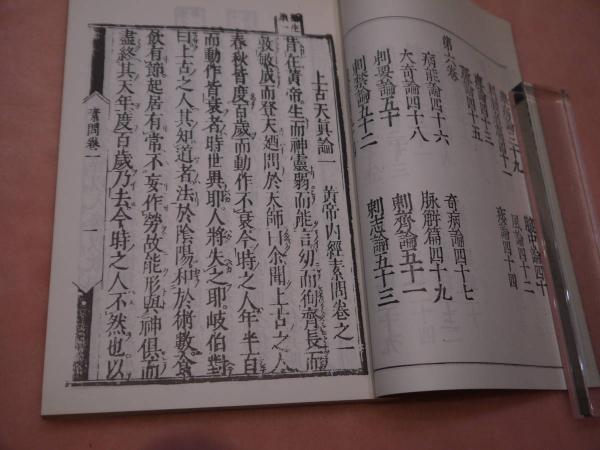 論三十九 腹中論四十
論四十一 風論四十二
論四十三 痿論四十四
論四十五
第六卷
病能論四十六 奇病論四十七
大奇論四十八 脉解篇四十九
刺要論五十 刺齊論五十一
刺禁論五十二 刺志論五十三
上古天眞論一 黃帝內經素問卷之一
昔在黃帝生而神靈弱而能言幼而徇齊長而
敦敏成而登天廼問於天師曰余聞上古之人
春秋皆度百歲而動作不衰今時之人年半百
而動作皆衰者時世異耶人將失之耶岐伯對
曰上古之人其知道者法於陰陽和於術數食
飲有節起居有常不妄作勞故能形與神俱而
盡終其天年度百歲乃去今時之人不然也以
素問卷一 一